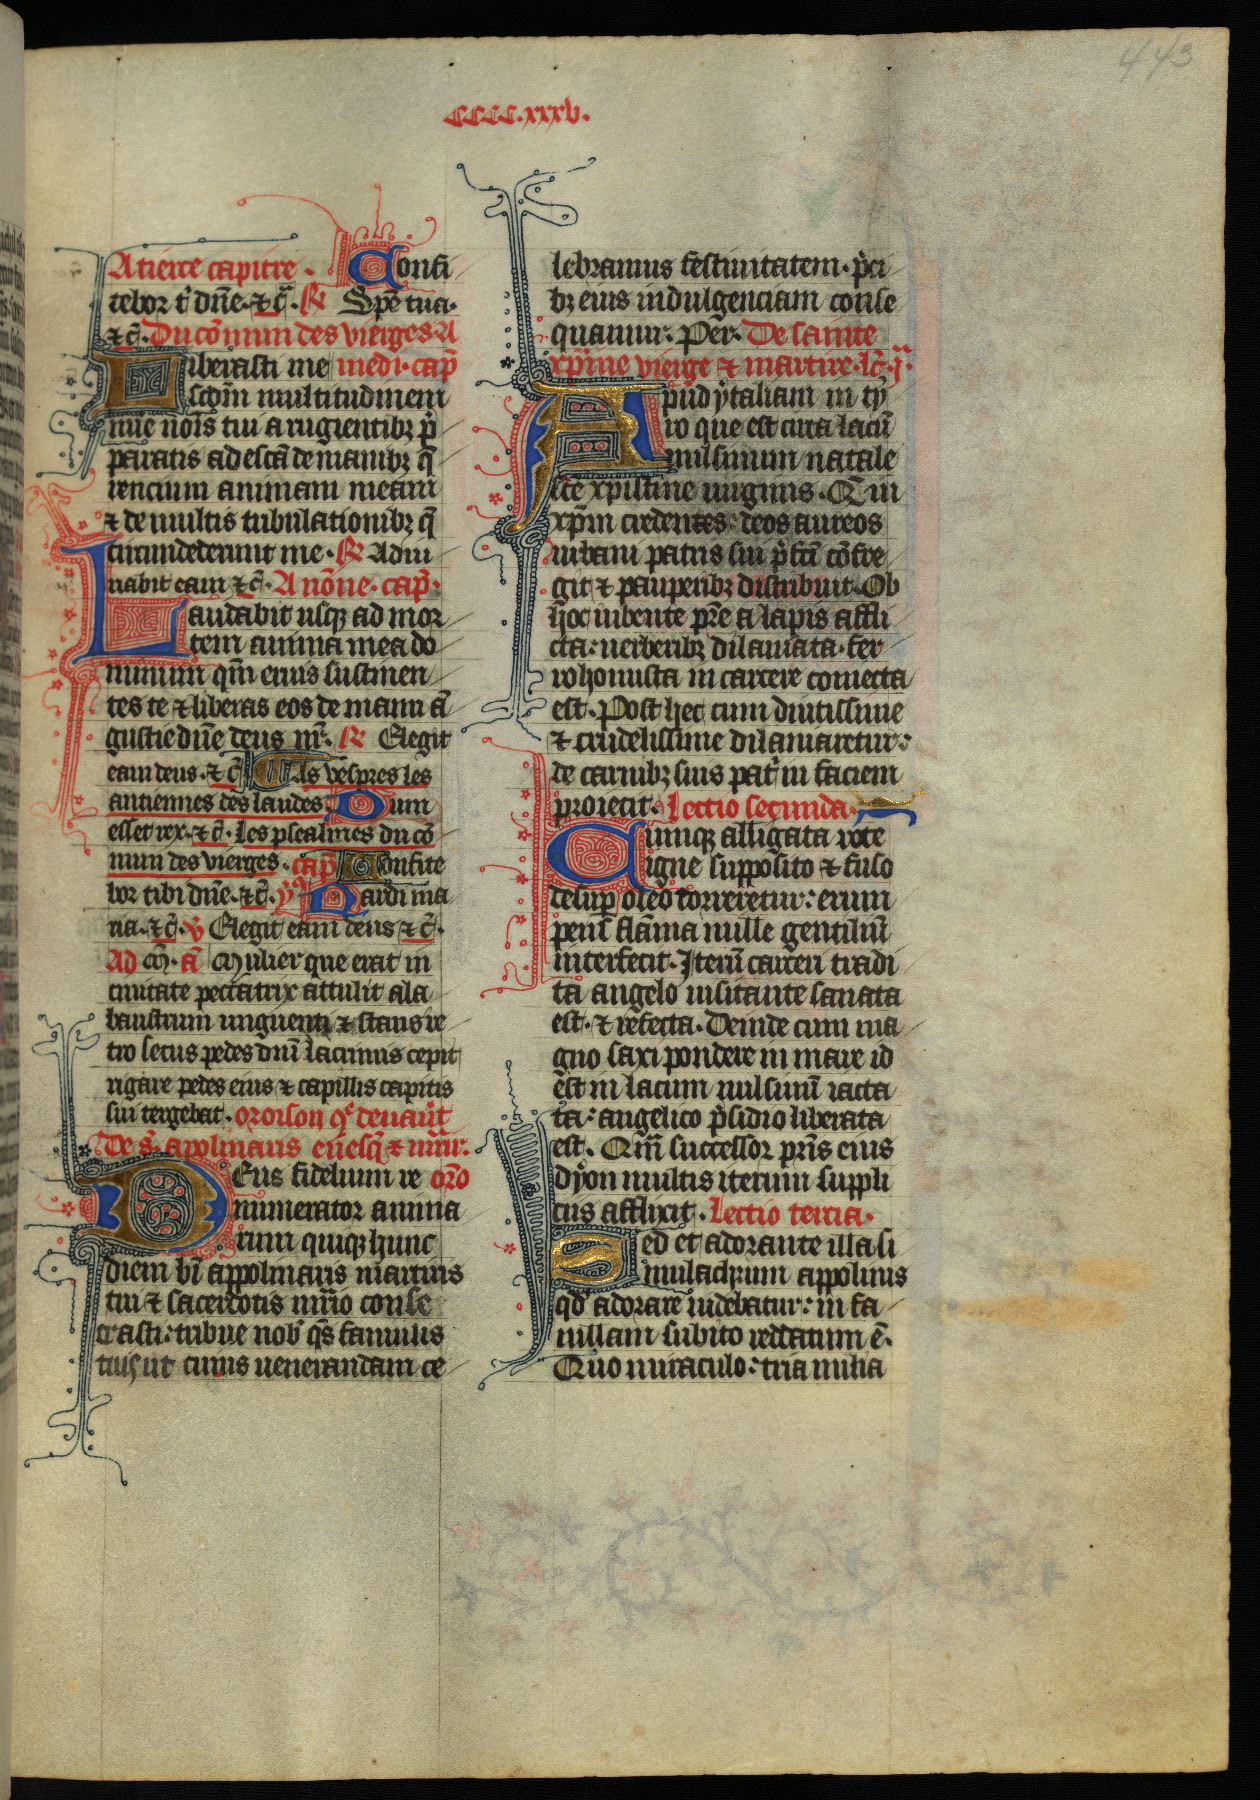 443
CCCC.xxxv.
A tierce capitre. Confi
tebor tˀ dn̄e. ⁊ c̄. R̸ Spē tua.
⁊ c̄. Du cōmun des vierges. A
Liberasti me medi. cap̄
scd̄m multitudinem
mĩe nois tui a rugientibꝫ p̄
paratis ad escā de manibꝫ q̄
rencium animam meam
⁊ de multis tribulationibꝫ q̄
circundederunt me. R̸ Adiu
uabit eam ⁊ c̄. A nōne. cap̄.
Laudabit usqꝫ ad mor
tem anima mea do
minum qm̄ eruis sustinen
tes te ⁊ liberas eos de manu ā
gustie dn̄e deus nr̄. R̸ Elegit
eam deus. ⁊ c̄. As vespres les
antiennes des laudes. Dum
esset rex. ⁊ c̄. Les psealmes du cō
mun des vierges. cap̄ Confite
bor tibi dn̄e. ⁊ c̄. yº Nardi ma
ria. ⁊ c̄. v̸ Elegit eam deus ⁊ c̄.
Ad m̄. ā Mulier que erat in
ciuitate peccatrix attulit ala
baustrum unguenti ⁊ stans re
tro secus pedes dnī lacrimis cepit
rigare pedes eius ⁊ capillis capitis
sui tergebat. oroison qͤ deuāt
De s̄. apolinaris eūesq̄ ⁊ mr̄.
Deus fidelium re oro
munerator anima
rum qui qꝫ hunc
diem bī appolinaris martiris
tui ⁊ sacerdotis mr̄io conse
crasti: tribue nob̄ q̄s famulis
tuis ut cuius uenerandam ce
lebramus festiuitatem. p̄ci
bꝫ eius indulgenciam conse
quamur. Per. De sainte
xp̄ine vierge ⁊ martire. lc̄. j.ᵃ
Apud ytaliam in ty
ro que est circa lacū
uulsinum natale
scē xpistine uirginis. Qui
xp̄m credentes: deos aureos
urbani patris sui p̄fcī cōfre
git ⁊ pauperibꝫ distribuit. Ob
hoc iubente pr̄e a lapis affli
cta: uerberibꝫ dilaniata. fer
ro honusta in carcere coniecta
est. Post hec cum diutissime
⁊ crudelissime dilaniaretur:
de carnibꝫ suis patˀ in faciem
proiecit. Lectio secunda.
Cumqꝫ alligata rote
igne supposito ⁊ fuso
desup̄ oleo torreretur: erum
penˢ flāma mille gentiliū
interfecit. Iterū carceri tradi
ta angelo uisitante sanata
est. ⁊ refecta. Deinde cum ma
gno saxi pondere in mare id
est in lacum uulsinū iacta
ta: angelico p̄sidio liberata
est. Qm̄ successor pr̄is eius
dyon multis iterum suppli
ciis afflixit. Lectio tercia.
Sed et adorante illa si
mulachrum appolinis
qd̄ adorare uidebatur: in fa
uillam subito reddatum ē.
Quo miraculo: tria milia